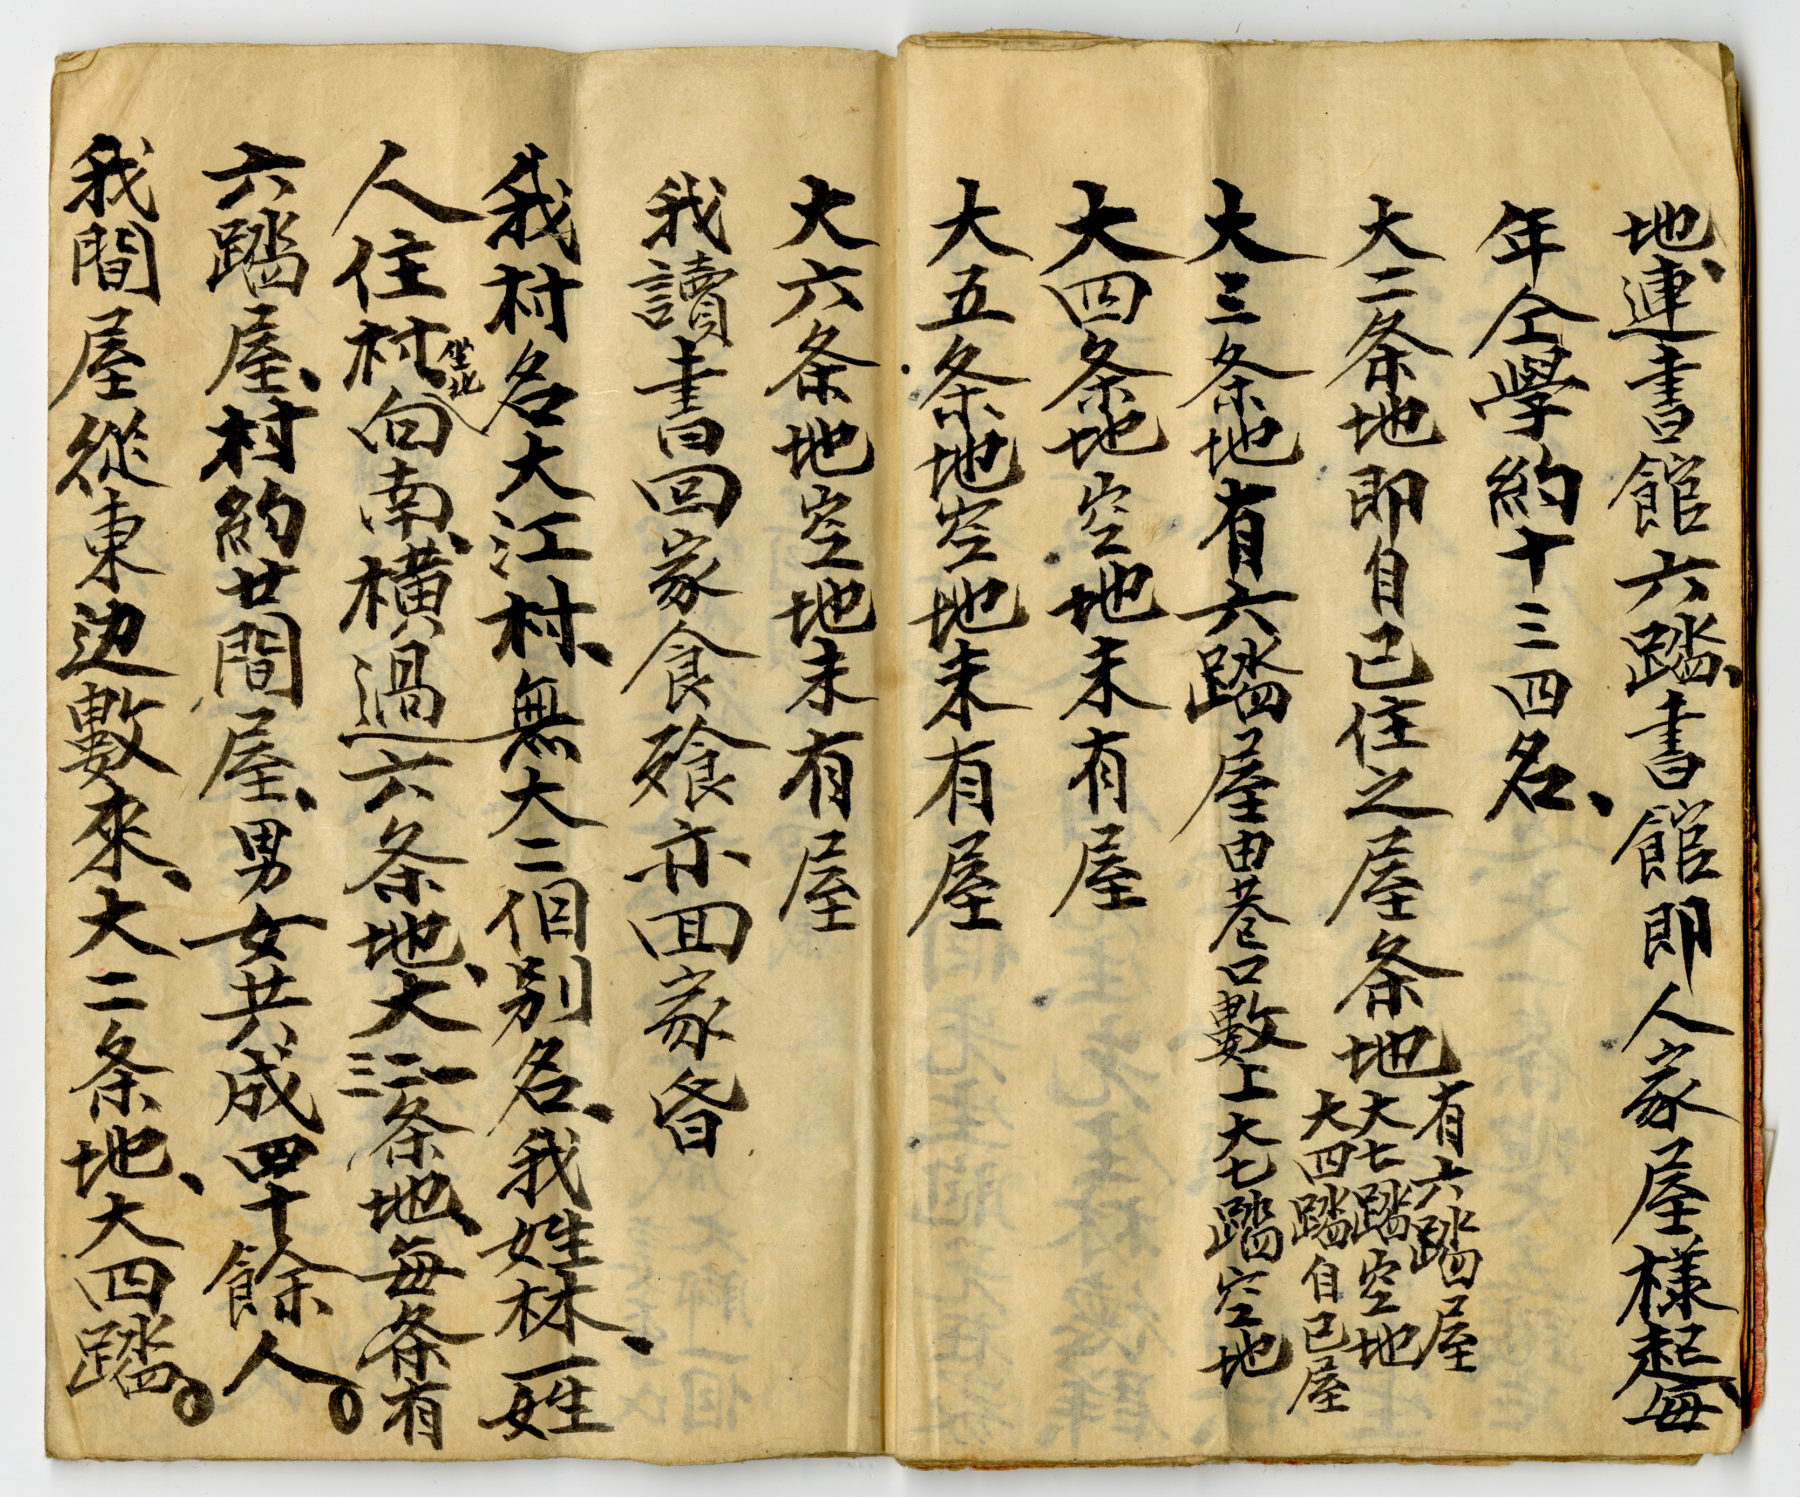 地、連書館六踏、書館即人家屋様起、每
年仝學約十三四名、
大二条地即自己住之屋条地
有六踏屋
大七踏空地
大四踏自己屋
大三条地有六踏屋由巷口數上大七踏空地
大四条地空地未有屋
大五条地空地未有屋
大六条地空地未有屋
我讀書回家食飱亦回家昏
我村名大江村、無大二個別名、我姓林、一姓
人住村坐北向南、橫過六条地、大一二三条地、每条有
六踏屋、村約廿間屋、男女共成四十餘人。
我間屋從東边數來、大二条地、大四踏。